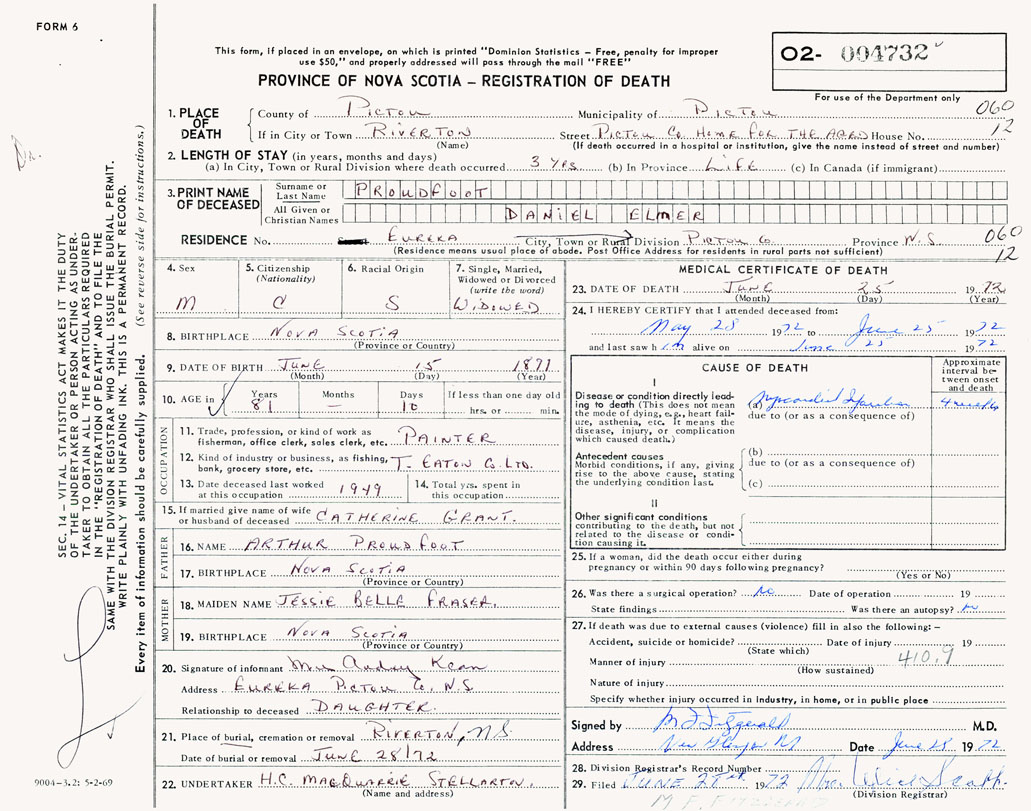 FORM 6
This form, if placed in an envelope, on which is printed "Dominion Statistics – Free, penalty for improper
use $50," and properly addressed will pass through the mail "FREE"
PROVINCE OF NOVA SCOTIA – REGISTRATION OF DEATH
O2- 004732
For use of the Department only
1. PLACE OF DEATH
County of Pictou Municipality of Pictou 060
If in City or Town RIVERTON Street Pictou Co. Home FOR THE AGED House No. 12
(Name) (If death occurred in a hospital or institution, give the name instead of street and number)
2. LENGTH OF STAY (in years, months and days)
(a) In City, Town or Rural Division where death occurred 3 YRS. (b) In Province LIFE (c) In Canada (if immigrant)
3. PRINT NAME OF DECEASED
Surname or Last Name PROUDFOOT
All Given or Christian Names DANIEL ELMER
RESIDENCE No. EUREKA City, Town or Rural Division PICTOU Co. Province N.S. 060
(Residence means usual place of abode. Post Office Address for residents in rural parts not sufficient) 12
4. Sex
M
5. Citizenship
(Nationality)
C
6. Racial Origin
S
7. Single, Married,
Widowed or Divorced
(write the word)
WIDOWED
8. BIRTHPLACE NOVA SCOTIA
(Province or Country)
9. DATE OF BIRTH JUNE 15 1891
(Month) (Day) (Year)
10. AGE in Years Months Days If less than one day old
81 – 10 hrs. or min.
OCCUPATION
11. Trade, profession, or kind of work as
fisherman, office clerk, sales clerk, etc. PAINTER
12. Kind of industry or business, as fishing,
bank, grocery store, etc. T. EATON CO. LTD.
13. Date deceased last worked
at this occupation 1949
14. Total yrs. spent in
this occupation
15. If married give name of wife
or husband of deceased CATHERINE GRANT.
FATHER
16. NAME ARTHUR PROUDFOOT
17. BIRTHPLACE NOVA SCOTIA
(Province or Country)
MOTHER
18. MAIDEN NAME JESSIE BELLE FRASER.
19. BIRTHPLACE NOVA SCOTIA
(Province or Country)
20. Signature of informant Mrs Audrey Kean
Address EUREKA PICTOU CO. N.S
Relationship to deceased DAUGHTER.
21. Place of burial, cremation or removal RIVERTON, NS
Date of burial or removal JUNE 28/72
22. UNDERTAKER H.C. MACQUARRIE STELLARTON.
(Name and address)
MEDICAL CERTIFICATE OF DEATH
23. DATE OF DEATH JUNE 25 1972
(Month) (Day) (Year)
24. I HEREBY CERTIFY that I attended deceased from:
May 28 1972 to June 25 1972
and last saw him alive on June 25 1972
CAUSE OF DEATH
Approximate
interval be-
tween onset
and death
I
Disease or condition directly lead-
ing to death (This does not mean
the mode of dying, e.g., heart fail-
ure, asthenia, etc. It means the
disease, injury, or complication
which caused death.)
(a) Myocardial Infarction 4 weeks
due to (or as a consequence of)
Antecedent causes
Morbid conditions, if any, giving
rise to the above cause, stating
the underlying condition last.
(b)
due to (or as a consequence of)
(c)
II
Other significant conditions
contributing to the death, but not
related to the disease or condi-
tion causing it.
25. If a woman, did the death occur either during
pregnancy or within 90 days following pregnancy?
(Yes or No)
26. Was there a surgical operation? No Date of operation 19
State findings Was there an autopsy? No
27. If death was due to external causes (violence) fill in also the following:–
Accident, suicide or homicide? Date of injury 19
(State which)
Manner of injury 410.9
(How sustained)
Nature of injury
Specify whether injury occurred in industry, in home, or in public place
Signed by M F Fitzgerald M.D.
Address New Glasgow NS Date June 28 1972
28. Division Registrar's Record Number
29. Filed JUNE 1972
(Division Registrar)
M. F. FITZGERALD
SEC. 14 – VITAL STATISTICS ACT MAKES IT THE DUTY
OF THE UNDERTAKER OR PERSON ACTING AS UNDER-
TAKER TO OBTAIN ALL THE PARTICULARS REQUIRED
IN THE "REGISTRATION OF DEATH" AND TO FILE THE
SAME WITH THE DIVISION REGISTRAR WHO SHALL ISSUE THE BURIAL PERMIT.
WRITE PLAINLY WITH UNFADING INK. THIS IS A PERMANENT RECORD.
Every item of information should be carefully supplied. (See reverse side for instructions.)
9004-3.2: 5-2-69